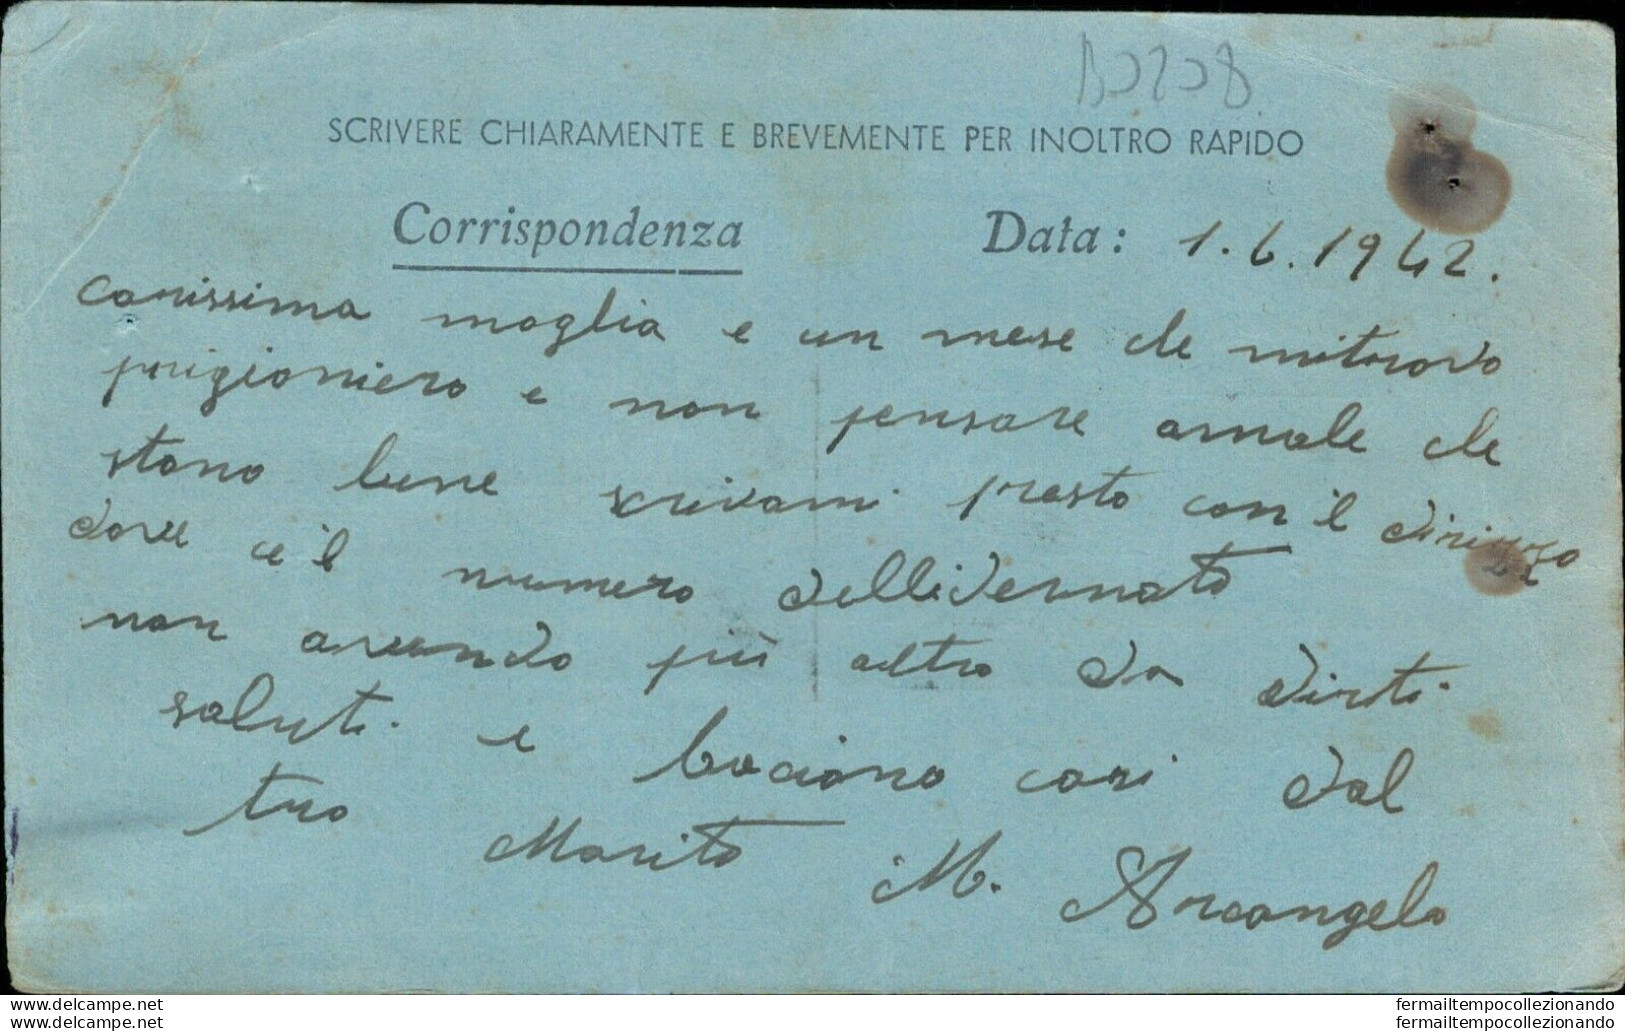 B0208
SCRIVERE CHIARAMENTE E BREVEMENTE PER INOLTRO RAPIDO
Corrispondenza Data: 1.6.1942.
carissima moglia e un mese che mitrovo
prigioniero e non pensare amale che
stano bene scrivami presto con il dirizzo
dove ce il numero dellidernato
non avendo più altro da dirti
saluti e baciano cosi dal
tuo Marito M. Arcangelo
www.delcampe.net
www.delcampe.net
fermailtempocollezionando
fermailtempocollezionando